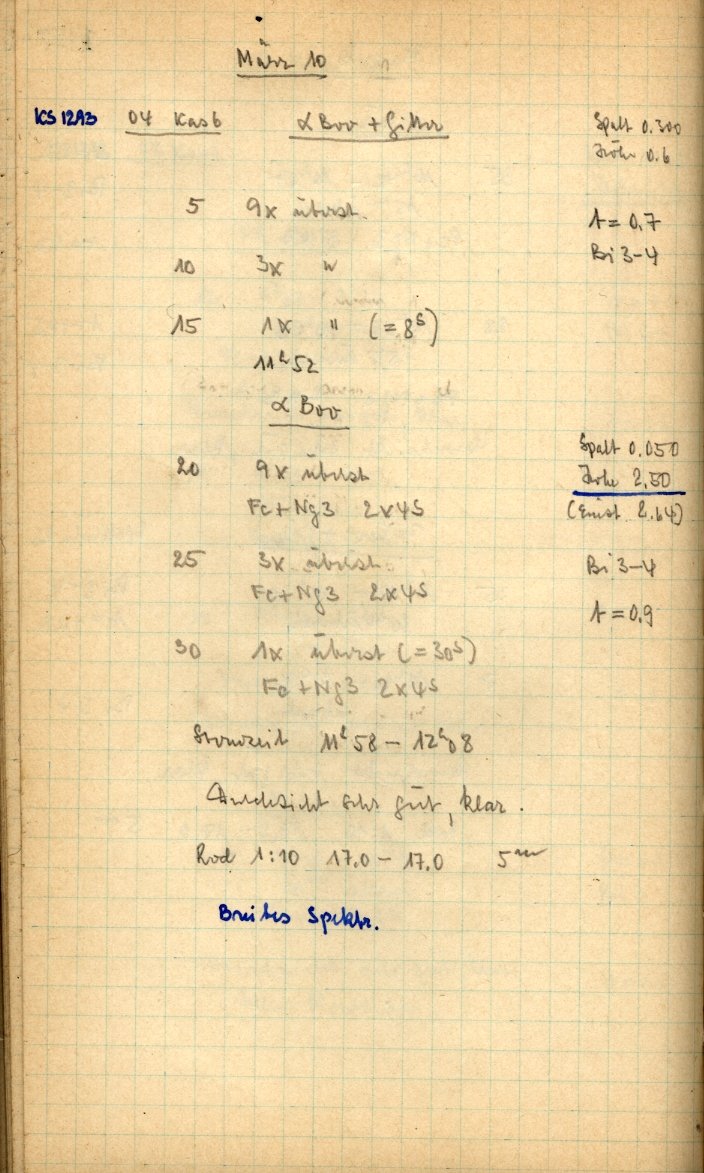 März 10
KS 12A3 04 Kas 6 α Boo + Gitter Spalt 0.300
Höhe 0.6
5 9x überst.
t = 0,7
10 3x " Bi 3-4
15 1x " (= 8ˢ)
11ʰ52
α Boo
Spalt 0.050
20 9x überst Höhe 2,50
Fe+Ng3 2x4s (Einst. 2.64)
25 3x überst. Bi 3-4
Fe+Ng3 2x4s
t = 0,9
30 1x überst (= 30ˢ)
Fe+Ng3 2x4s
Sternzeit 11ʰ58 - 12ʰ08
Durchsicht sehr gut, klar.
Rod 1:10 17.0 - 17.0 5ᵐ
Breites Spektr.